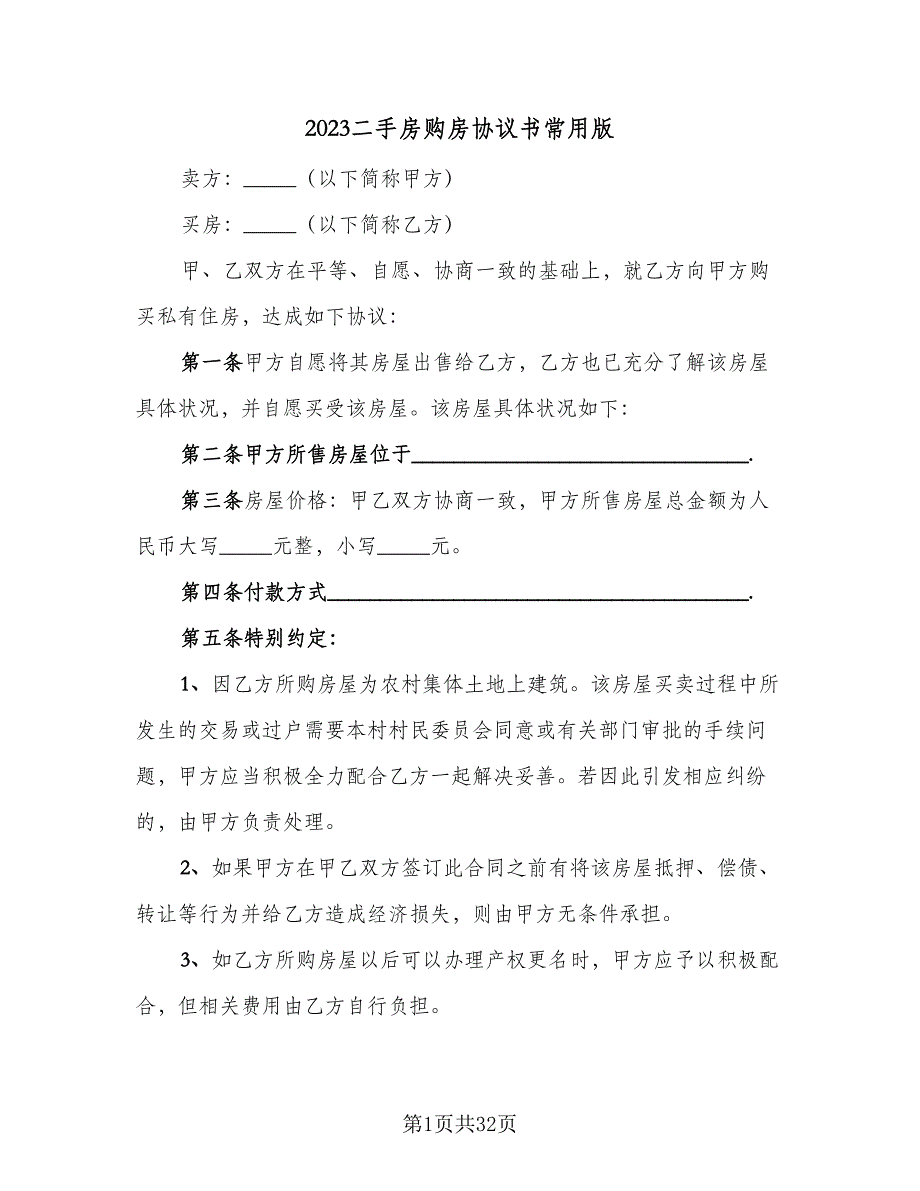 2023二手房购房协议书常用版
卖方：_____（以下简称甲方）
买房：_____（以下简称乙方）
甲、乙双方在平等、自愿、协商一致的基础上，就乙方向甲方购
买私有住房，达成如下协议：
第一条甲方自愿将其房屋出售给乙方，乙方也已充分了解该房屋
具体状况，并自愿买受该房屋。该房屋具体状况如下：
第二条甲方所售房屋位于________________________________.
第三条房屋价格：甲乙双方协商一致，甲方所售房屋总金额为人
民币大写_____元整，小写_____元。
第四条付款方式________________________________________.
第五条特别约定：
1、因乙方所购房屋为农村集体土地上建筑。该房屋买卖过程中所
发生的交易或过户需要本村村民委员会同意或有关部门审批的手续问
题，甲方应当积极全力配合乙方一起解决妥善。若因此引发相应纠纷
的，由甲方负责处理。
2、如果甲方在甲乙双方签订此合同之前有将该房屋抵押、偿债、
转让等行为并给乙方造成经济损失，则由甲方无条件承担。
3、如乙方所购房屋以后可以办理产权更名时，甲方应予以积极配
合，但相关费用由乙方自行负担。
第1页共32页